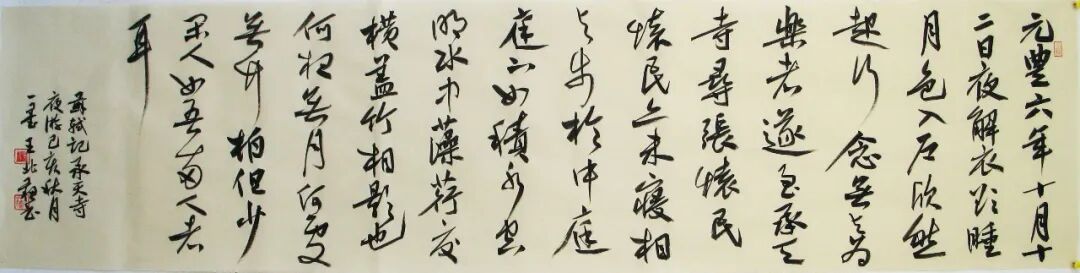 元豐六年十月十
二日夜解衣欲睡
月色入户欣然
起行念無與為
樂者遂至承天
寺尋張懷民
懷民亦未寢相
與步於中庭
庭下如積水空
明水中藻荇交
橫蓋竹柏影也
何夜無月何處
無竹柏但少
閑人如吾兩人者
耳
蘇軾記承天寺
夜游己亥秋月
王北書